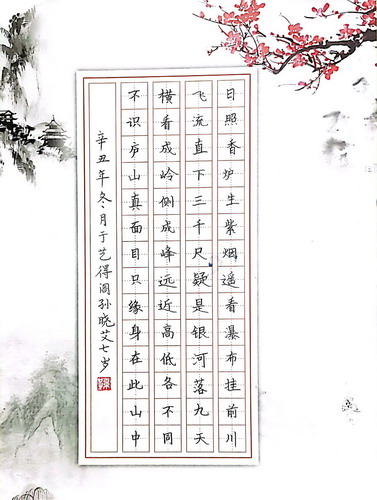 日照香炉生紫烟遥看瀑布挂前川
飞流直下三千尺疑是银河落九天
横看成岭侧成峰远近高低各不同
不识庐山真面目只缘身在此山中
辛丑年冬月于艺得阁孙晓艾七岁